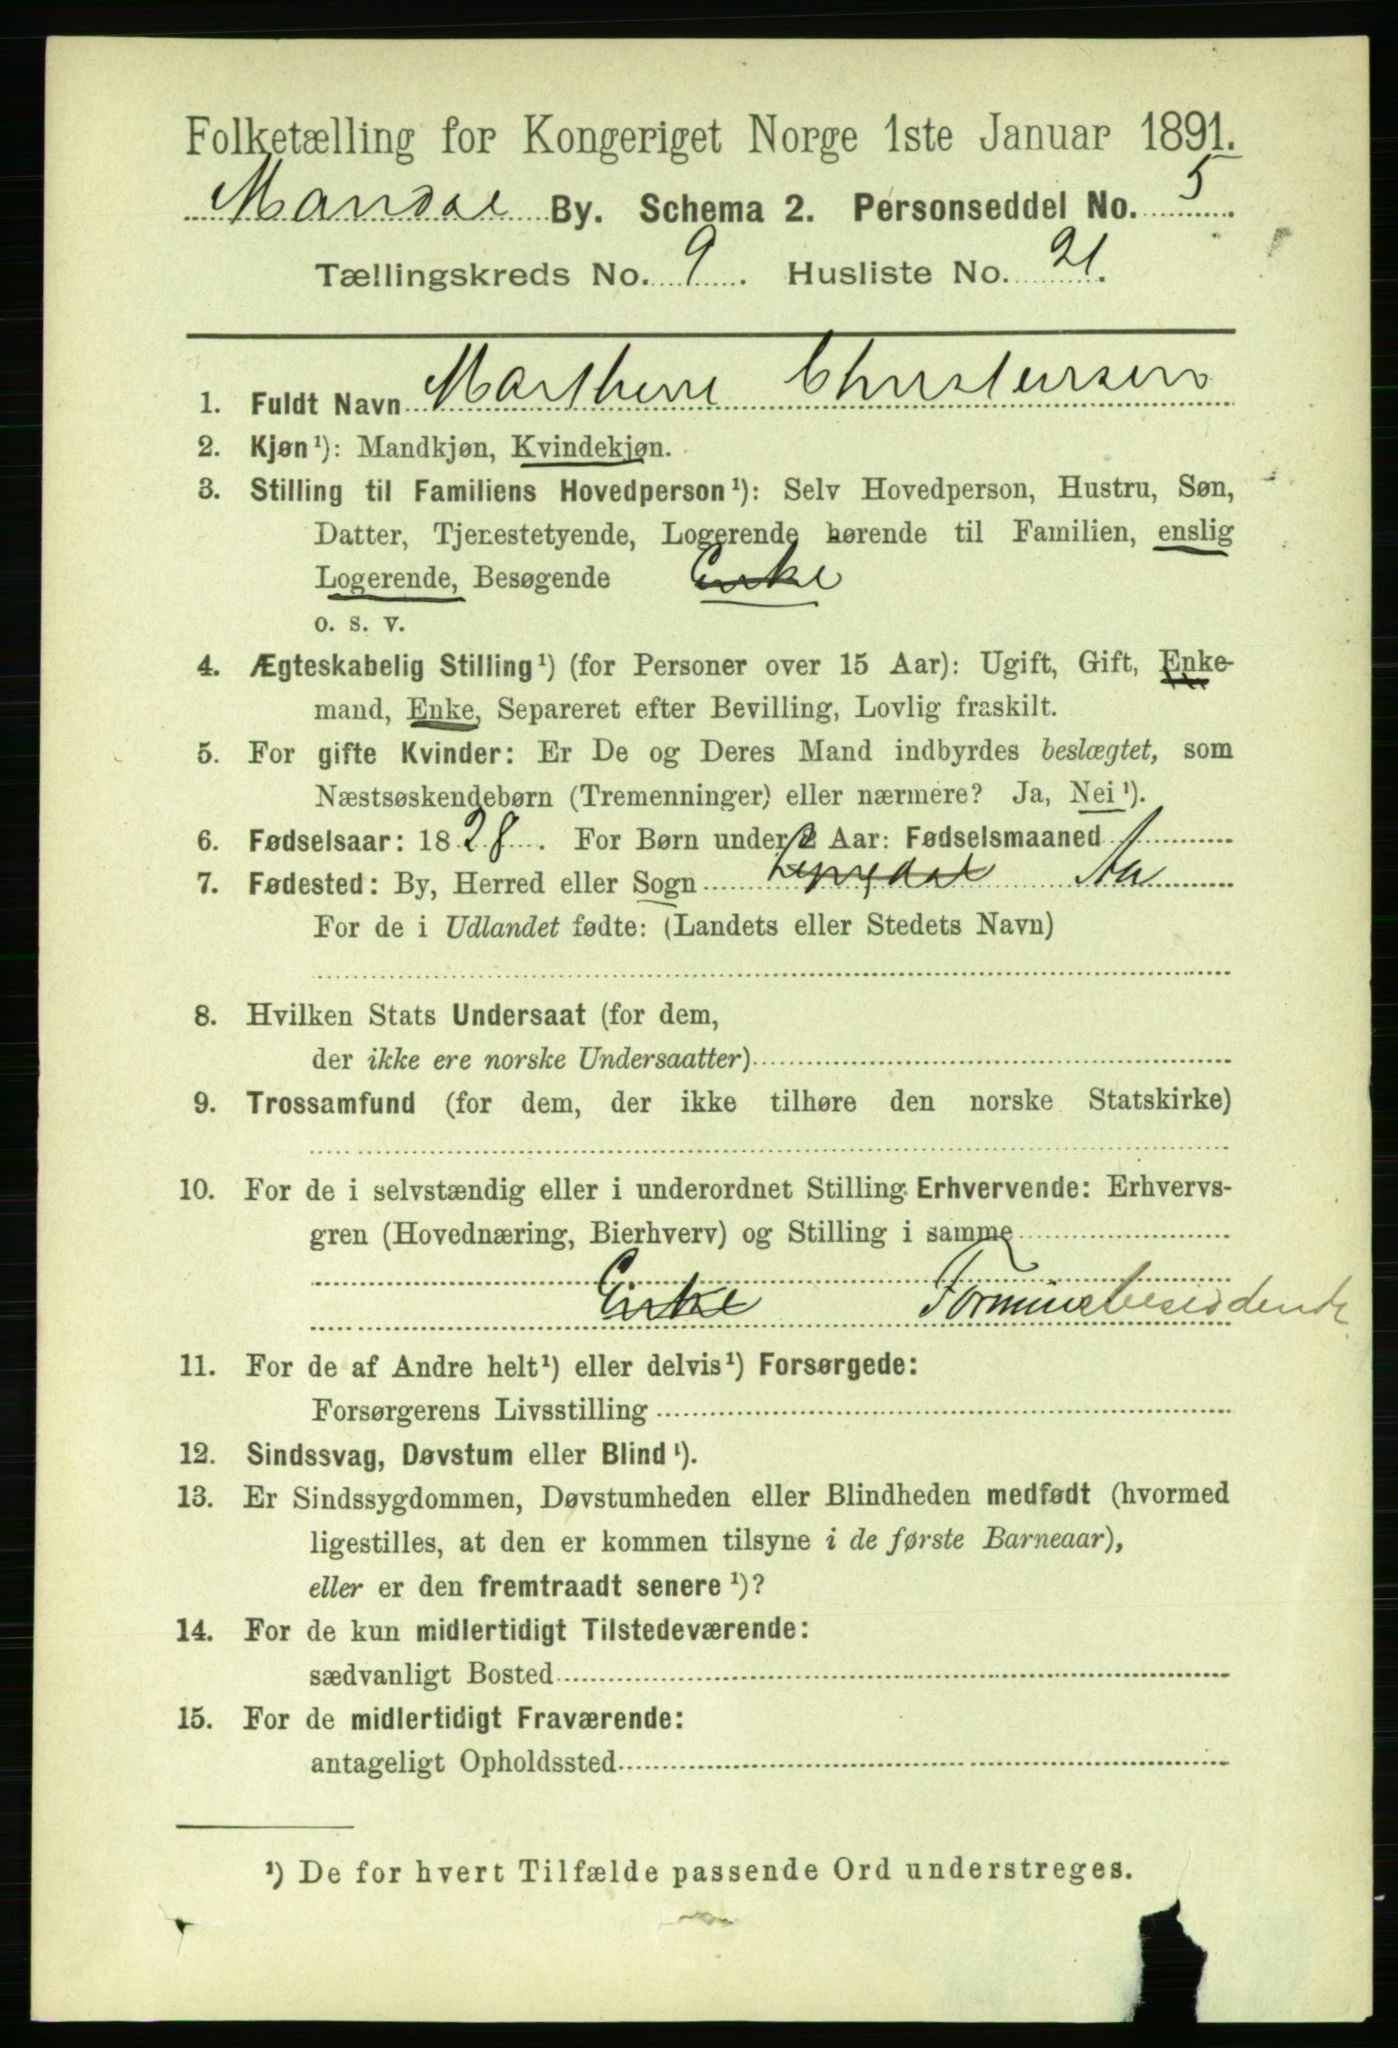 Folketælling for Kongeriget Norge 1ste Januar 1891.
Mandal By. Schema 2. Personseddel No. 5
Tællingskreds No. 9. Husliste No. 21.
1. Fuldt Navn Marthene Christensen
2. Kjøn¹): Mandkjøn, Kvindekjøn.
3. Stilling til Familiens Hovedperson¹): Selv Hovedperson, Hustru, Søn,
Datter, Tjenestetyende, Logerende hørende til Familien, enslig
Logerende, Besøgende Enke
o. s. v.
4. Ægteskabelig Stilling¹) (for Personer over 15 Aar): Ugift, Gift, Enke-
mand, Enke, Separeret efter Bevilling, Lovlig fraskilt.
5. For gifte Kvinder: Er De og Deres Mand indbyrdes beslægtet, som
Næstsøskendebørn (Tremenninger) eller nærmere? Ja, Nei¹).
6. Fødselsaar: 1828. For Børn under 2 Aar: Fødselsmaaned
7. Fødested: By, Herred eller Sogn Aa
For de i Udlandet fødte: (Landets eller Stedets Navn)
8. Hvilken Stats Undersaat (for dem,
der ikke ere norske Undersaatter)
9. Trossamfund (for dem, der ikke tilhøre den norske Statskirke)
10. For de i selvstændig eller i underordnet Stilling Erhvervende: Erhvervs-
gren (Hovednæring, Bierhverv) og Stilling i samme
Enke Formuebesiddende
11. For de af Andre helt¹) eller delvis¹) Forsørgede:
Forsørgerens Livsstilling
12. Sindssvag, Døvstum eller Blind¹).
13. Er Sindssygdommen, Døvstumheden eller Blindheden medfødt (hvormed
ligestilles, at den er kommen tilsyne i de første Barneaar),
eller er den fremtraadt senere¹)?
14. For de kun midlertidigt Tilstedeværende:
sædvanligt Bosted
15. For de midlertidigt Fraværende:
antageligt Opholdssted
¹) De for hvert Tilfælde passende Ord understreges.